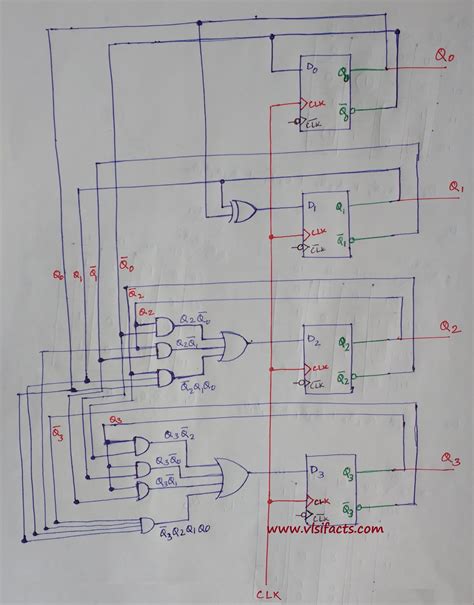 Q0
D0 Q0
CLK Q̅0
C̅L̅K̅
Q1
D1 Q1
CLK Q̅1
C̅L̅K̅
Q0 Q1 Q̅1 Q̅0
Q̅2
Q2
Q2Q̅0
Q2Q̅1
Q̅2Q1Q0
Q2
D2 Q2
CLK Q̅2
C̅L̅K̅
Q̅3
Q3
Q3Q̅2
Q3Q̅0
Q3Q̅1
Q̅3Q2Q1Q0
Q3
D3 Q3
CLK Q̅3
C̅L̅K̅
www.vlsifacts.com
CLK